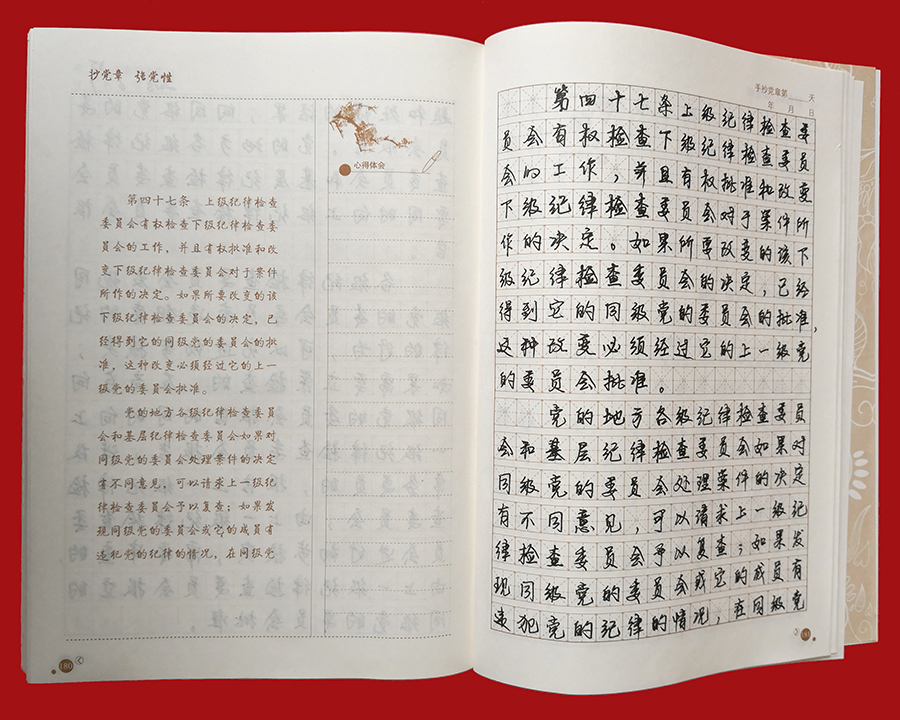 抄党章 强党性
心得体会
第四十七条 上级纪律检查
委员会有权检查下级纪律检查委
员会的工作，并且有权批准和改
变下级纪律检查委员会对于案件
所作的决定。如果所要改变的该
下级纪律检查委员会的决定，已
经得到它的同级党的委员会的批
准，这种改变必须经过它的上一
级党的委员会批准。
党的地方各级纪律检查委员
会和基层纪律检查委员会如果对
同级党的委员会处理案件的决定
有不同意见，可以请求上一级纪
律检查委员会予以复查；如果发
现同级党的委员会或它的成员有
违犯党的纪律的情况，在同级党
180
手抄党章第 天
年 月 日
第四十七条上级纪律检查委
员会有权检查下级纪律检查委员
会的工作，并且有权批准和改变
下级纪律检查委员会对于案件所
作的决定。如果所要改变的该下
级纪律检查委员会的决定，已经
得到它的同级党的委员会的批准，
这种改变必须经过它的上一级党
的委员会批准。
党的地方各级纪律检查委员
会和基层纪律检查委员会如果对
同级党的委员会处理案件的决定
有不同意见，可以请求上一级纪
律检查委员会予以复查；如果发
现同级党的委员会或它的成员有
违犯党的纪律的情况，在同级党
181